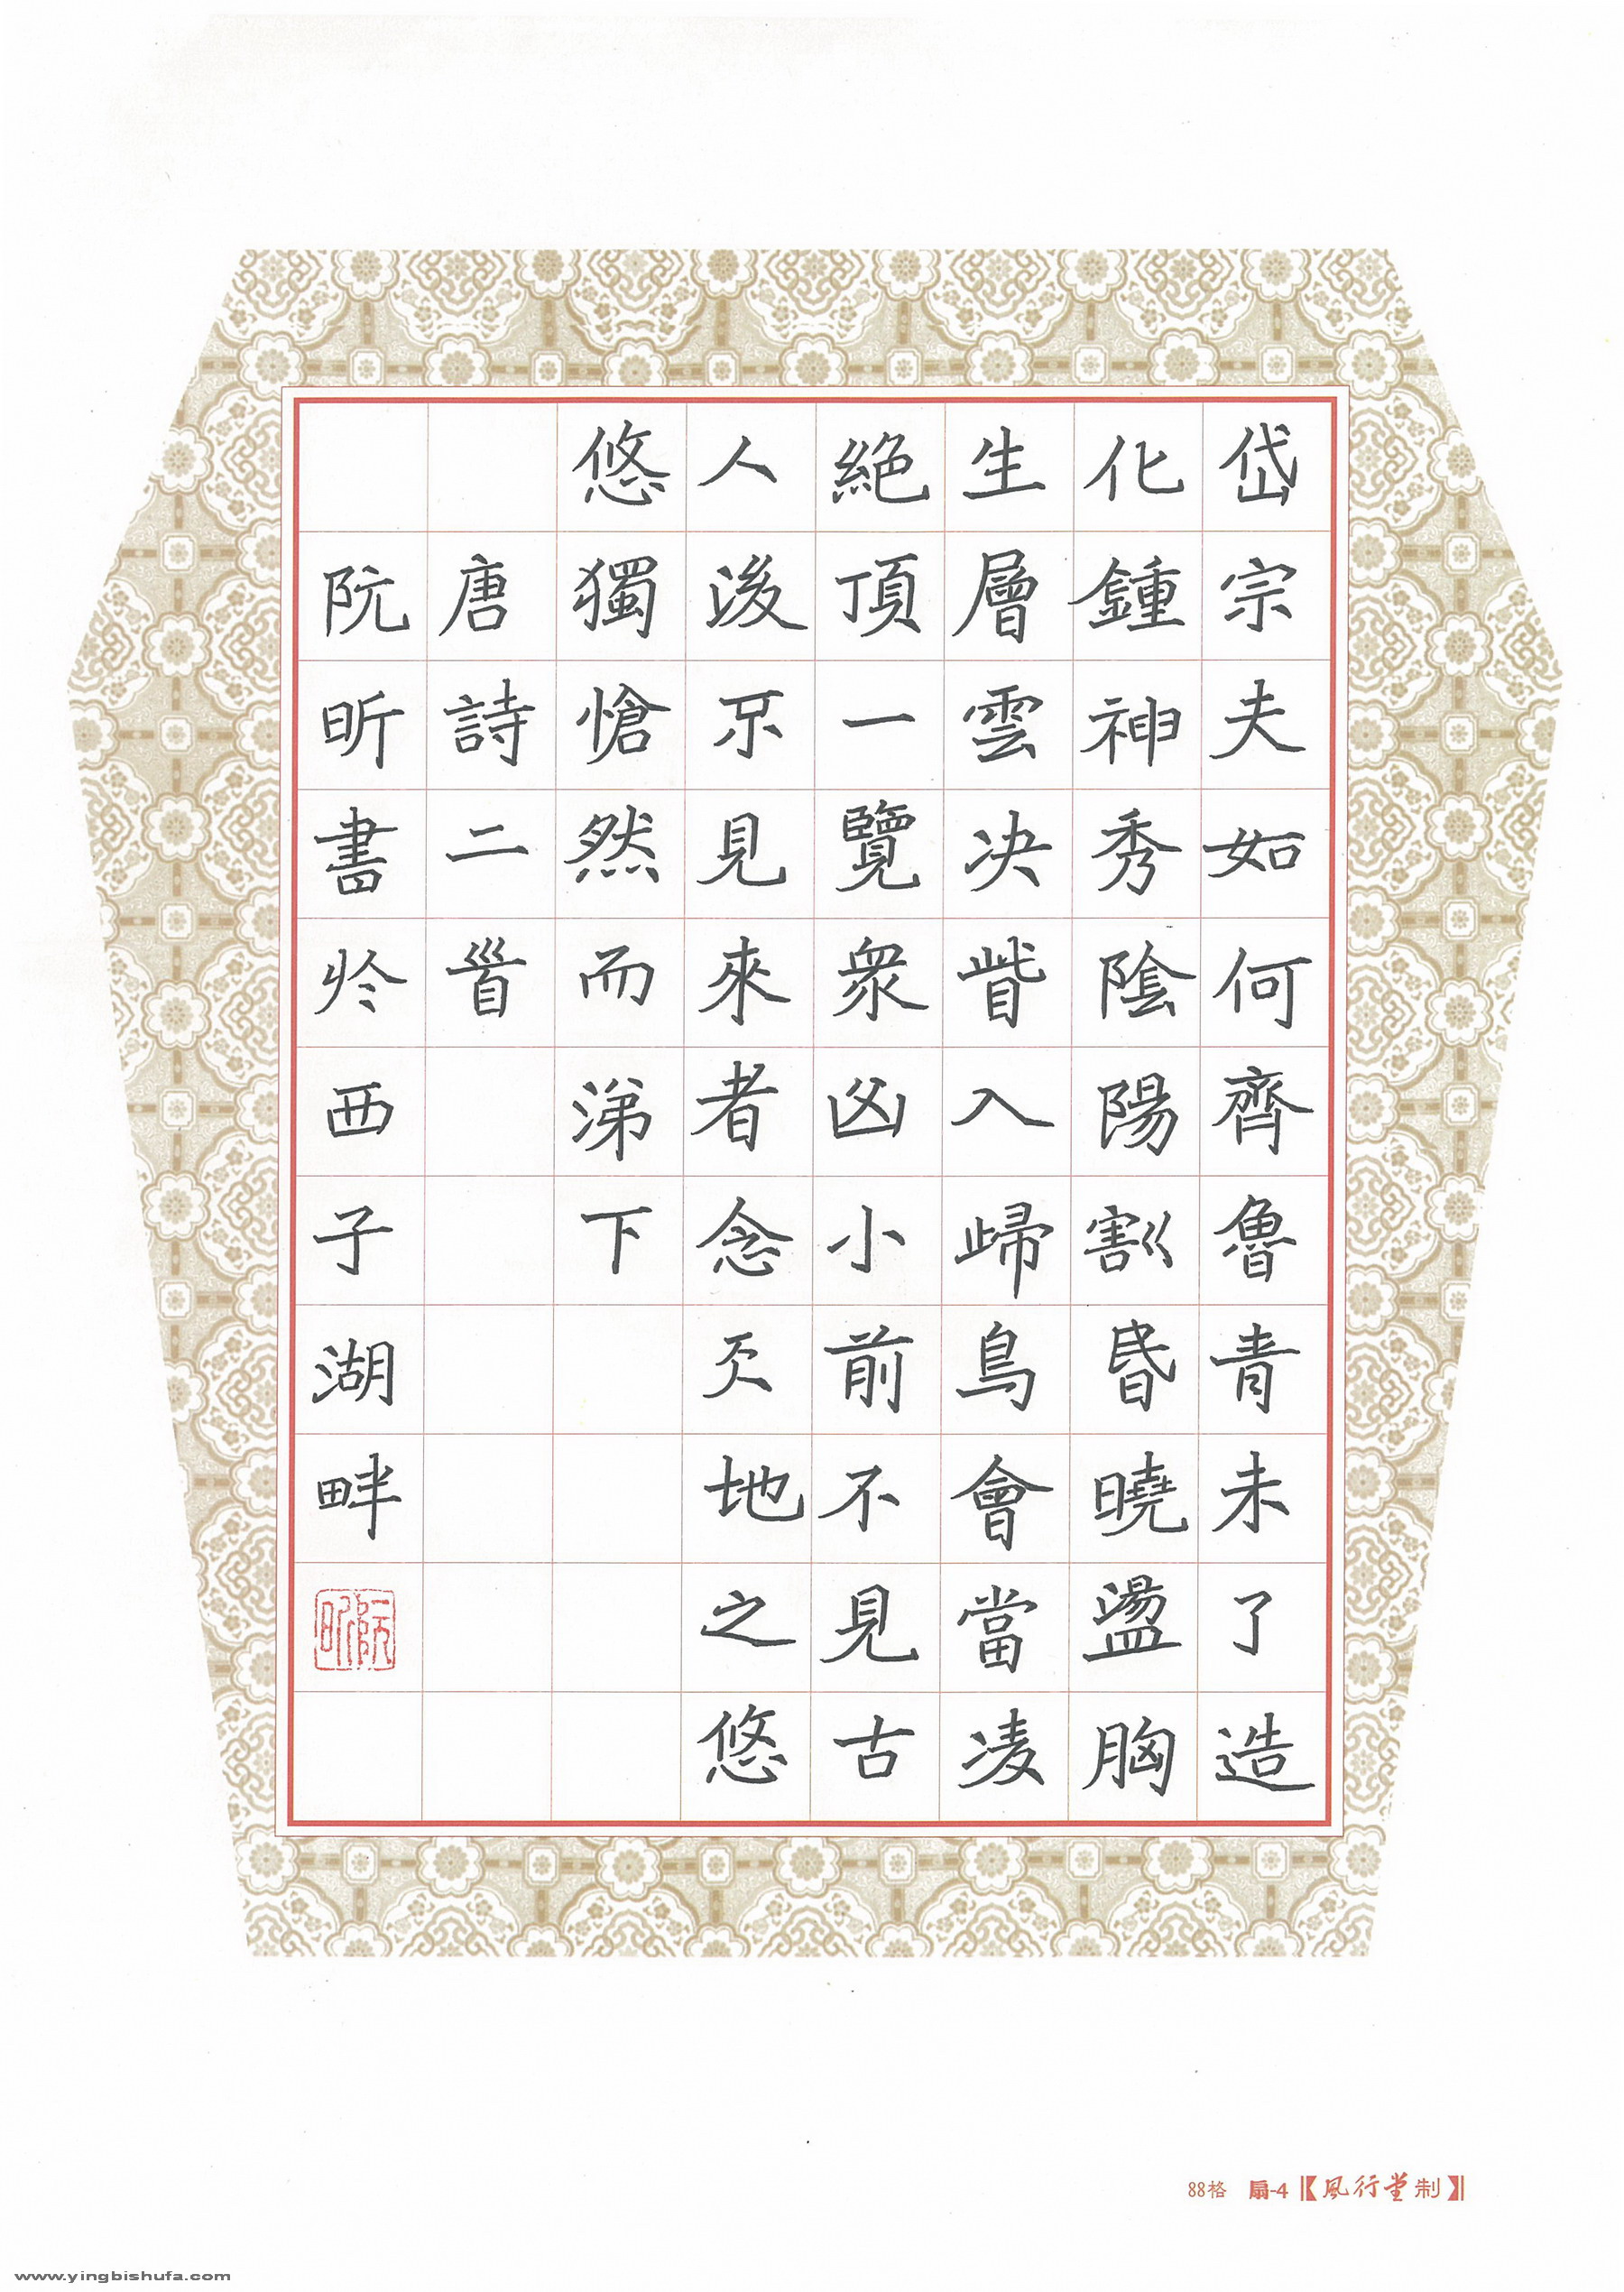 岱宗夫如何齊魯青未了造
化鍾神秀陰陽割昏曉盪胸
生層雲决眥入歸鳥會當凌
絕頂一覽眾山小前不見古
人後不見來者念天地之悠
悠獨愴然而涕下
唐詩二首
阮昕書於西子湖畔
阮昕
88格 扇-4【風行堂制】
www.yingbishufa.com